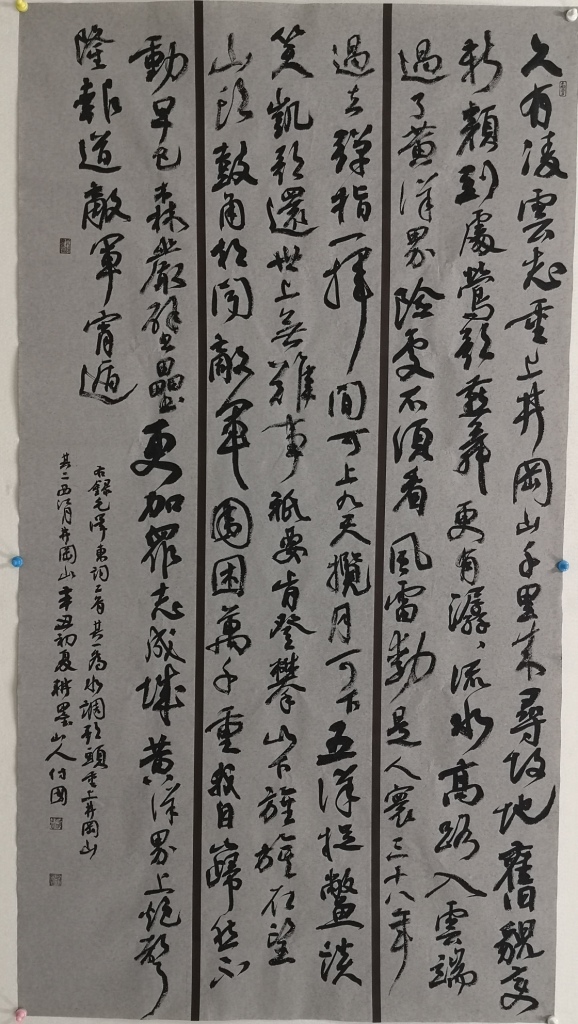 久有凌雲志重上井岡山千里來尋故地舊貌變
新顏到處鶯歌燕舞更有潺、流水高路入雲端
過了黃洋界險處不須看風雷動是人寰三十八年
過去彈指一揮間可上九天攬月可下五洋捉鱉談
笑凱歌還世上無難事祇要肯登攀山下旌旗在望
山頭鼓角相聞敵軍圍困萬千重我自巋然不
動早已森嚴壁壘更加眾志成城黃洋界上炮聲
隆報道敵軍宵遁
右錄毛澤東詞二首其一為水調歌頭重上井岡山
其二西江月井岡山辛丑初夏耕墨山人付國